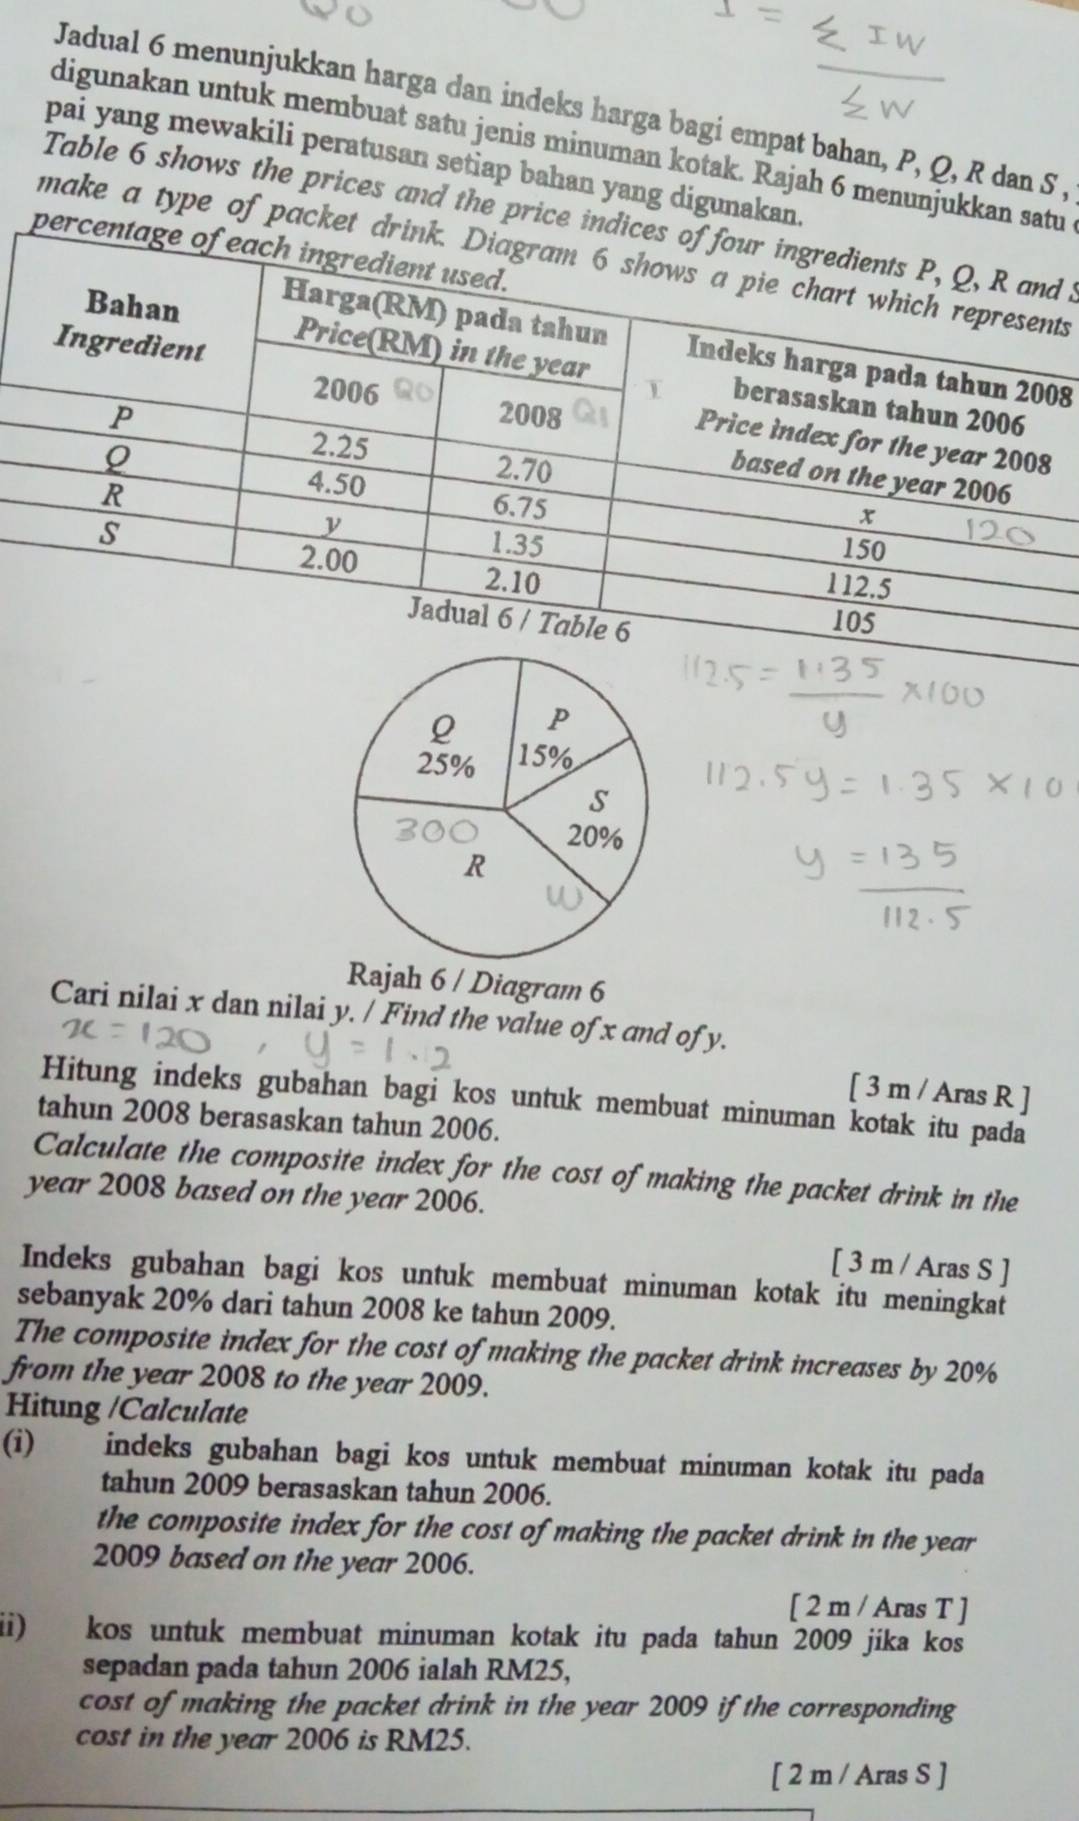 Q0
I = Σ IW
Σ W
Jadual 6 menunjukkan harga dan indeks harga bagi empat bahan, P, Q, R dan S ,
digunakan untuk membuat satu jenis minuman kotak. Rajah 6 menunjukkan satu
pai yang mewakili peratusan setiap bahan yang digunakan.
Table 6 shows the prices and the price indices of four ingredients P, Q, R and S
make a type of packet drink. Diagram 6 shows a pie chart which represents
percentage of each ingredient used.
Bahan
Ingredient
Harga(RM) pada tahun
Price(RM) in the year
Indeks harga pada tahun 2008
berasaskan tahun 2006
Price index for the year 2008
based on the year 2006
I
2006 Q0
2008 Q1
P 2.25 2.70 x 120
Q 4.50 6.75 150
R y 1.35 112.5
S 2.00 2.10 105
Jadual 6 / Table 6
112.5 = 1.35 ×100
y
112.5 y = 1.35 ×10
y = 135
112.5
Q
25%
P
15%
S
20%
300
R
W
Rajah 6 / Diagram 6
Cari nilai x dan nilai y. / Find the value of x and of y.
x = 120 , y = 1.2
[ 3 m / Aras R ]
Hitung indeks gubahan bagi kos untuk membuat minuman kotak itu pada
tahun 2008 berasaskan tahun 2006.
Calculate the composite index for the cost of making the packet drink in the
year 2008 based on the year 2006.
[ 3 m / Aras S ]
Indeks gubahan bagi kos untuk membuat minuman kotak itu meningkat
sebanyak 20% dari tahun 2008 ke tahun 2009.
The composite index for the cost of making the packet drink increases by 20%
from the year 2008 to the year 2009.
Hitung /Calculate
(i) indeks gubahan bagi kos untuk membuat minuman kotak itu pada
tahun 2009 berasaskan tahun 2006.
the composite index for the cost of making the packet drink in the year
2009 based on the year 2006.
[ 2 m / Aras T ]
ii) kos untuk membuat minuman kotak itu pada tahun 2009 jika kos
sepadan pada tahun 2006 ialah RM25,
cost of making the packet drink in the year 2009 if the corresponding
cost in the year 2006 is RM25.
[ 2 m / Aras S ]